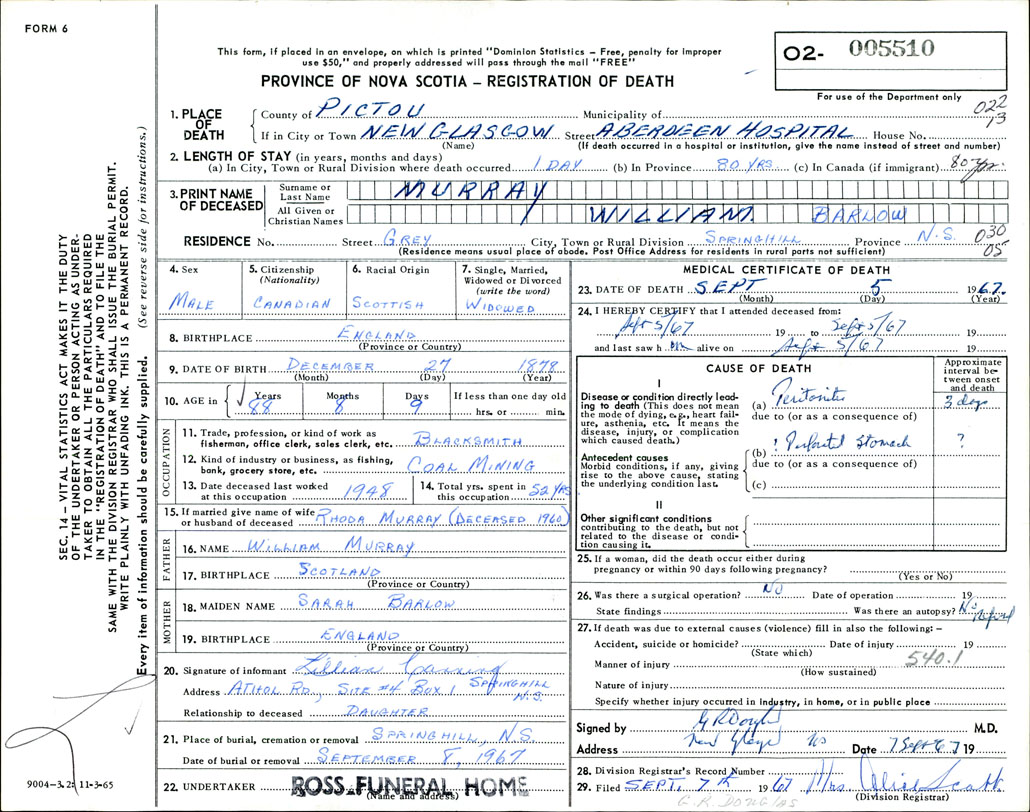 FORM 6
This form, if placed in an envelope, on which is printed "Dominion Statistics – Free, penalty for improper
use $50," and properly addressed will pass through the mail "FREE"
PROVINCE OF NOVA SCOTIA – REGISTRATION OF DEATH
O2- 005510
For use of the Department only
022
13
1. PLACE OF DEATH
County of PICTOU Municipality of
If in City or Town NEW GLASGOW Street ABERDEEN HOSPITAL House No.
(Name) (If death occurred in a hospital or institution, give the name instead of street and number)
2. LENGTH OF STAY (in years, months and days)
(a) In City, Town or Rural Division where death occurred 1 DAY (b) In Province 80 YRS (c) In Canada (if immigrant) 80 yr.
3. PRINT NAME OF DECEASED
Surname or Last Name MURRAY
All Given or Christian Names WILLIAM BARLOW
RESIDENCE No. Street GREY City, Town or Rural Division SPRINGHILL Province N.S. 030
05
(Residence means usual place of abode. Post Office Address for residents in rural parts not sufficient)
4. Sex MALE
5. Citizenship (Nationality) CANADIAN
6. Racial Origin SCOTTISH
7. Single, Married, Widowed or Divorced (write the word) WIDOWED
8. BIRTHPLACE ENGLAND
(Province or Country)
9. DATE OF BIRTH DECEMBER 27 1878
(Month) (Day) (Year)
10. AGE in Years 88 Months 8 Days 9 If less than one day old
hrs. or min.
OCCUPATION
11. Trade, profession, or kind of work as
fisherman, office clerk, sales clerk, etc. BLACKSMITH
12. Kind of industry or business, as fishing,
bank, grocery store, etc. COAL MINING
13. Date deceased last worked
at this occupation 1948
14. Total yrs. spent in
this occupation 52 YRS
15. If married give name of wife
or husband of deceased RHODA MURRAY (DECEASED 1960)
FATHER
16. NAME WILLIAM MURRAY
17. BIRTHPLACE SCOTLAND
(Province or Country)
MOTHER
18. MAIDEN NAME SARAH BARLOW
19. BIRTHPLACE ENGLAND
(Province or Country)
20. Signature of informant Lillian
Address ATHOL RD., SITE #4 BOX 1 SPRINGHILL
N.S.
Relationship to deceased DAUGHTER
21. Place of burial, cremation or removal SPRINGHILL, N.S.
Date of burial or removal SEPTEMBER 8, 1967
22. UNDERTAKER ROSS FUNERAL HOME
(Name and address)
MEDICAL CERTIFICATE OF DEATH
23. DATE OF DEATH SEPT 5 1967.
(Month) (Day) (Year)
24. I HEREBY CERTIFY that I attended deceased from:
Sept 5/67 19 to Sept 5/67 19
and last saw h im alive on Sept 5/67 19
CAUSE OF DEATH
Approximate interval between onset and death
I
Disease or condition directly leading to death (This does not mean the mode of dying, e.g., heart failure, asthenia, etc. It means the disease, injury, or complication which caused death.)
(a) Peritonitis 3 days
due to (or as a consequence of)
Antecedent causes
Morbid conditions, if any, giving rise to the above cause, stating the underlying condition last.
(b) ? Perforated Stomach ?
due to (or as a consequence of)
(c)
II
Other significant conditions
contributing to the death, but not related to the disease or condition causing it.
25. If a woman, did the death occur either during
pregnancy or within 90 days following pregnancy?
(Yes or No)
26. Was there a surgical operation? NO Date of operation 19
State findings Was there an autopsy? No
27. If death was due to external causes (violence) fill in also the following: –
Accident, suicide or homicide? Date of injury 19
(State which)
540.1
Manner of injury
(How sustained)
Nature of injury
Specify whether injury occurred in industry, in home, or in public place
Signed by M.D.
Address New Glasgow NS Date 7 Sept 67 19
28. Division Registrar's Record Number
29. Filed SEPT. 7th 1967 Mrs. Scott
(Division Registrar)
G.R. DOUGLAS
SEC. 14 – VITAL STATISTICS ACT MAKES IT THE DUTY
OF THE UNDERTAKER OR PERSON ACTING AS UNDER-
TAKER TO OBTAIN ALL THE PARTICULARS REQUIRED
IN THE "REGISTRATION OF DEATH" AND TO FILE THE
SAME WITH THE DIVISION REGISTRAR WHO SHALL ISSUE THE BURIAL PERMIT.
WRITE PLAINLY WITH UNFADING INK. THIS IS A PERMANENT RECORD.
Every item of information should be carefully supplied. (See reverse side for instructions.)
9004-3.2m 11-3-65